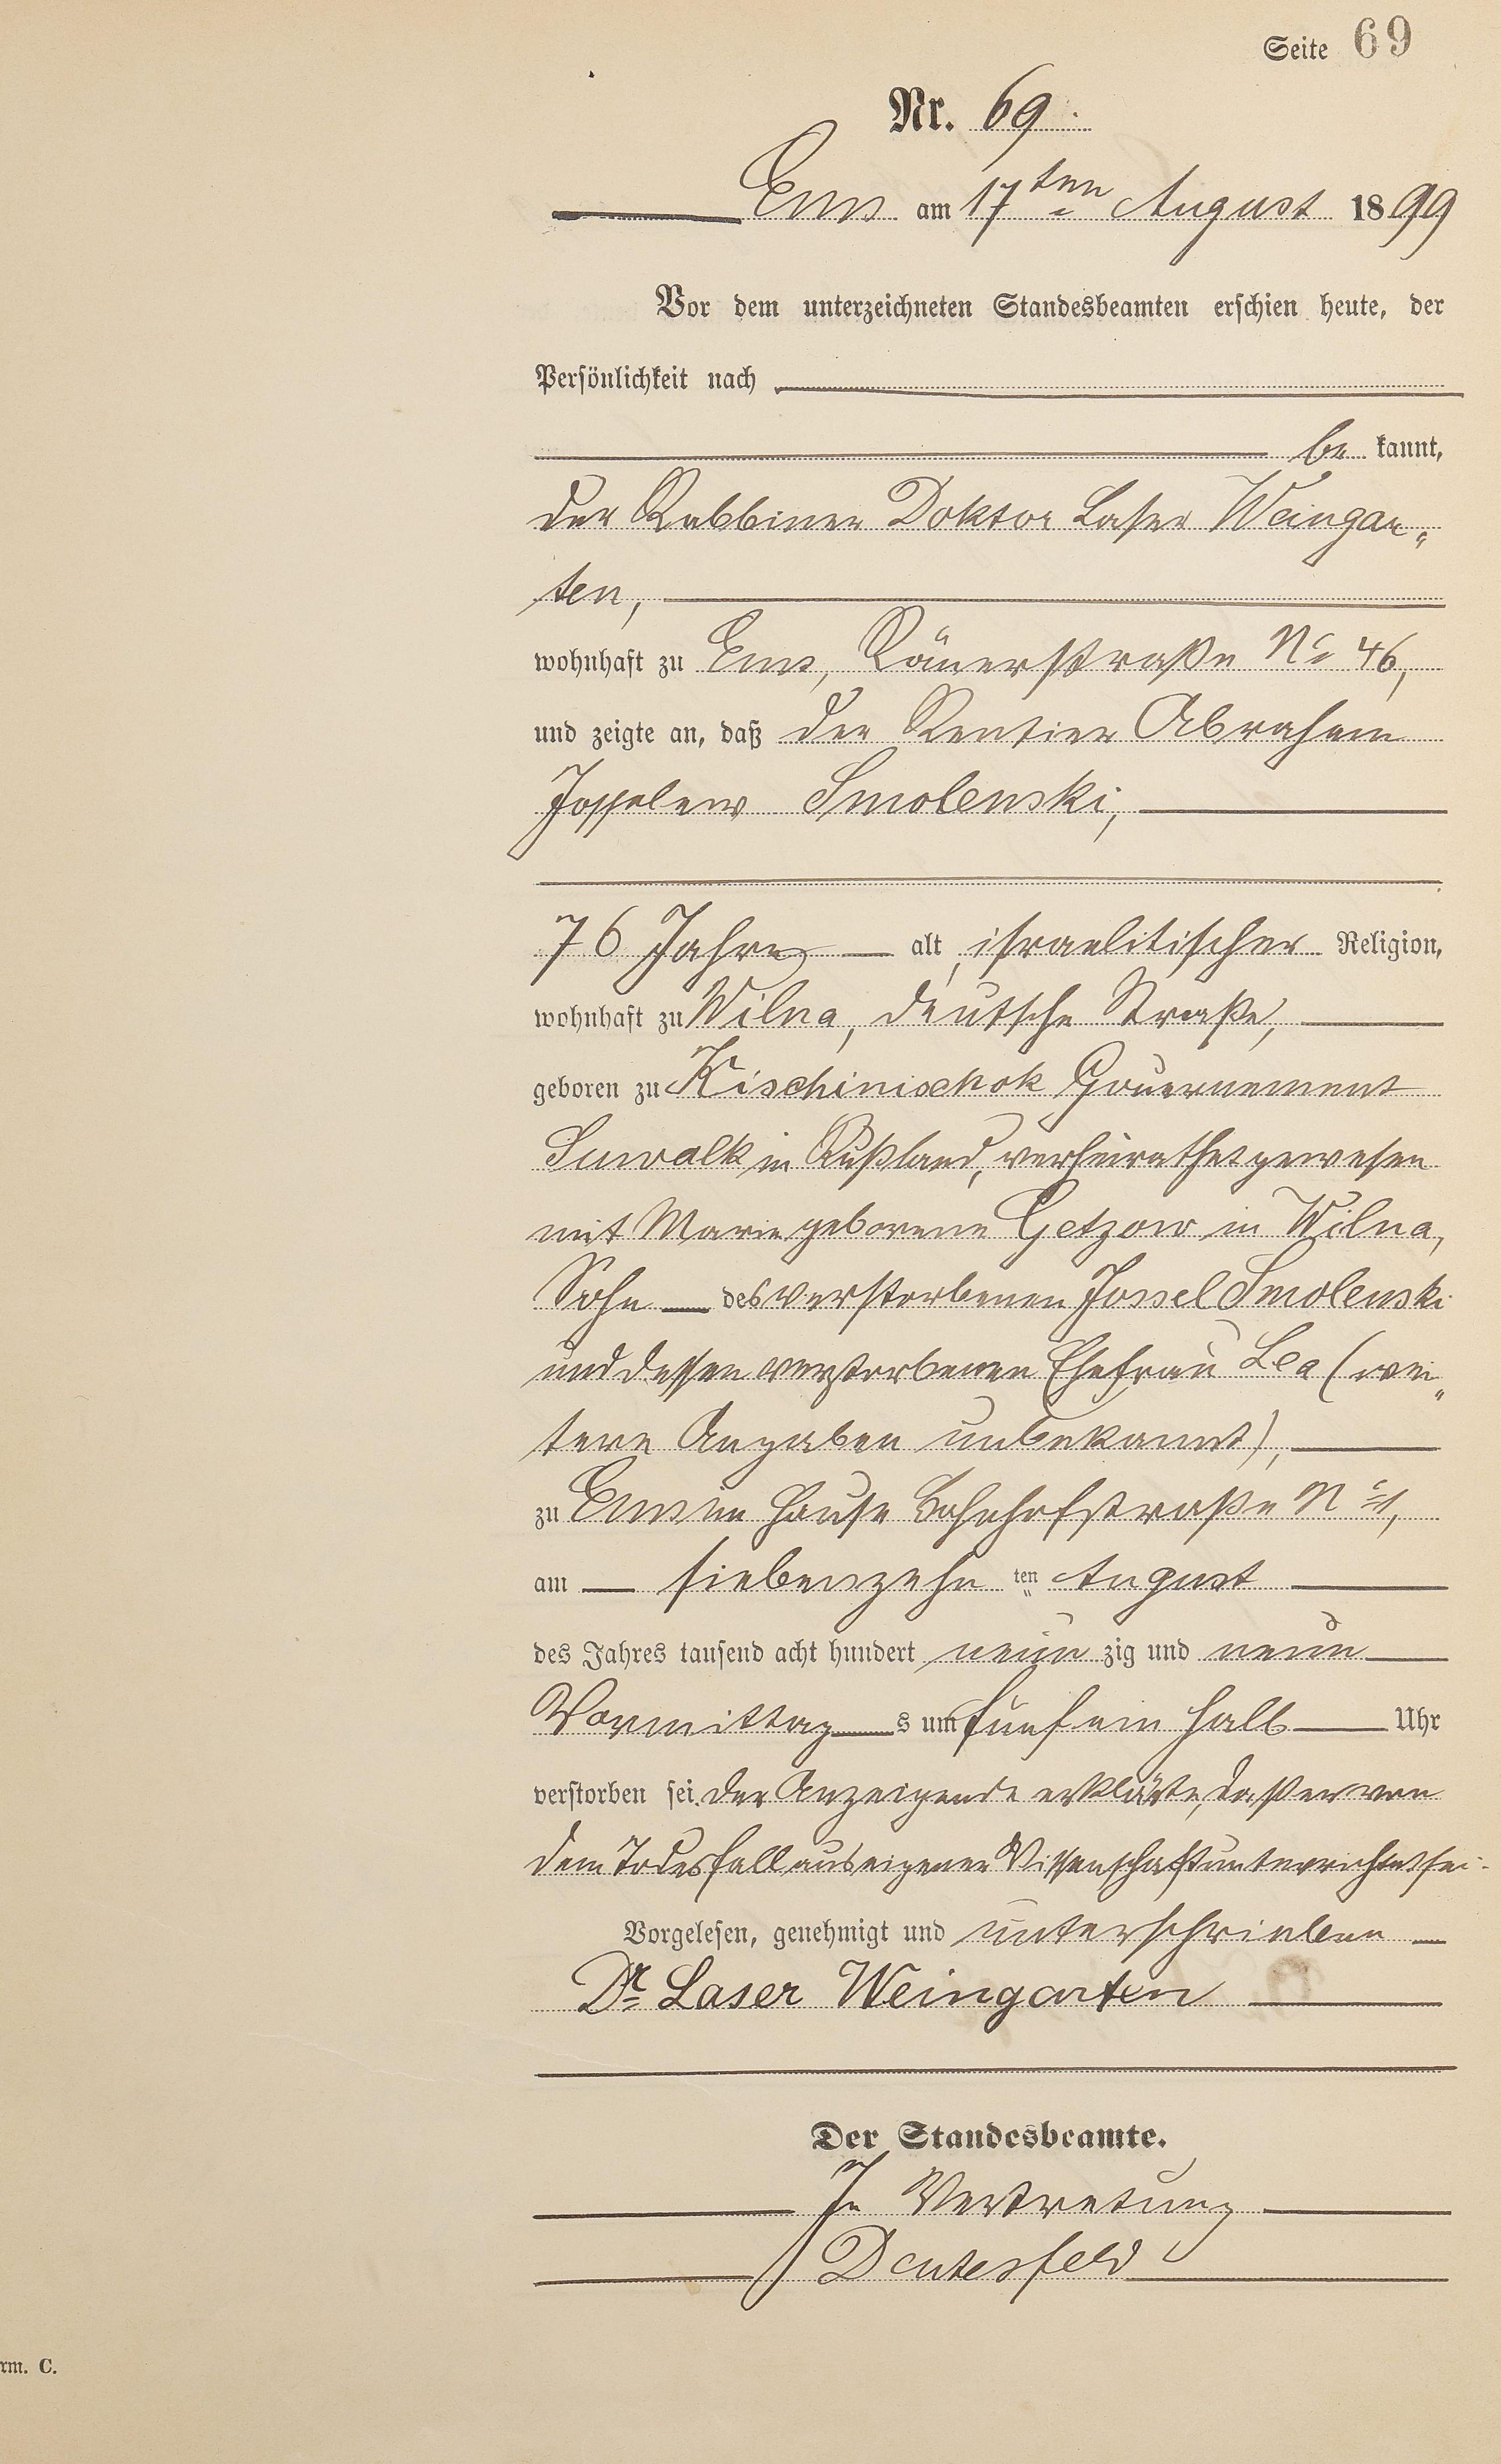 Seite 69
Nr. 69.
Ems am 17ten August 1899
Vor dem unterzeichneten Standesbeamten erschien heute, der
Persönlichkeit nach
be kannt,
der Rabbiner Doktor Laser Weingar„
ten,
wohnhaft zu Ems, Römerstraße No 46,
und zeigte an, daß der Rentier Abraham
Josselew Smolenski,
76 Jahre alt, israelitischer Religion,
wohnhaft zu Wilna, deutsche Straße,
geboren zu Kischinischok Gouvernement
Suwalk in Rußland, verheirathet gewesen
mit Marie geborene Getzow in Wilna,
Sohn des verstorbenen Jossel Smolenski
und dessen verstorbenen Ehefrau Lea (wei„
tere Angaben unbekannt),
zu Ems im Hause Bahnhofstraße No 1,
am siebenzehn ten August
des Jahres tausend acht hundert neun zig und neun
Vormittag s um fünf ein halb Uhr
verstorben sei. Der Anzeigende erklärte, daß er von
dem Todesfall aus eigener Wissenschaft unterrichtet sei.
Vorgelesen, genehmigt und unterschrieben
Dr. Laser Weingarten
Der Standesbeamte.
In Vertretung
rm. C.